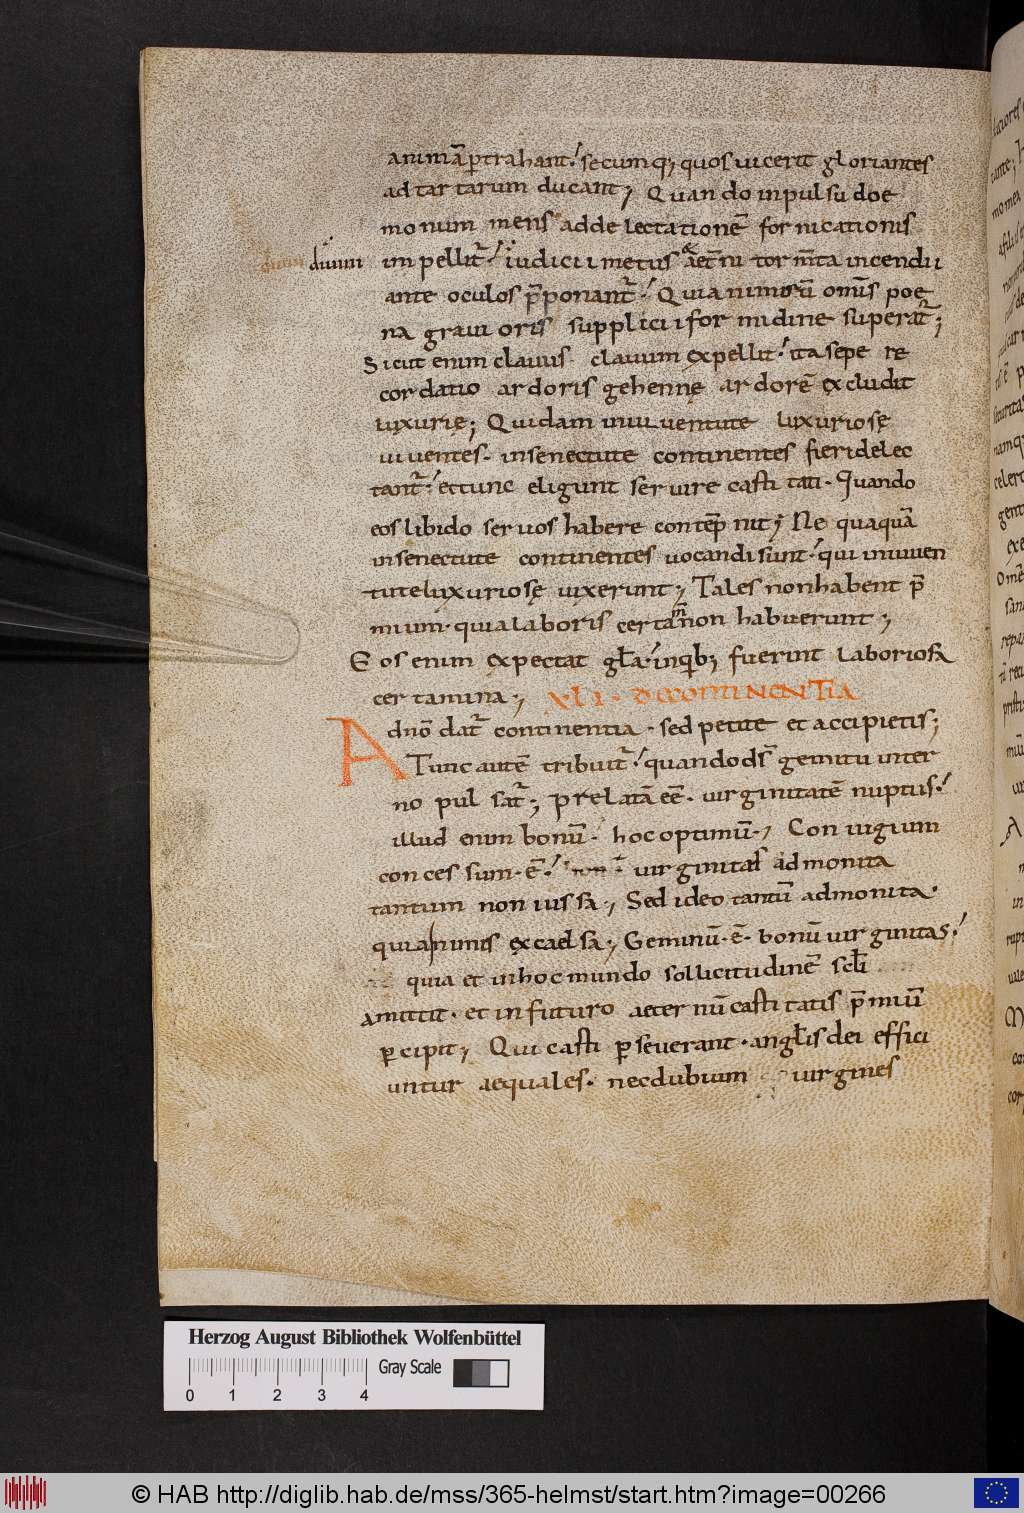 animā ꝑtrahant. secumq; quos uicerit gloriantes
ad tartarum ducant; Quando inpulsu doe
monum mens ad delectationē fornicationis
diuini diuini impellit̄. iudicii metus & aet̄ni torm̄ta incendii
ante oculos p̄ponant̄. Quia nimirū omīs poe
na grauioris supplicii formidine superat̄;
Sicut enim clauus clauum expellit. ita sepe re
cordatio ardoris gehennę ardorē excludit
luxurię; Quidam in iuuentute luxuriosę
uiuentes. in senectute continentes fieri delec
tant̄. et tunc eligunt seruire castitati. Quando
eos libido seruos habere contēpnit; Ne quaquā
in senectute continentes uocandi sunt. qui in iuuen
tute luxuriosę uixerunt; Tales non habent p̄
mium. quia laboris certam̄ non habuerunt;
Eos enim expectat gła. in quib; fuerunt laboriosa
certamina; XLI. De continentia
Adnō dat̄ continentia. sed petite et accipietis;
Tunc autē tribuit̄. quando ds̄ gemitu inter
no pulsat̄; Prelatā eē. uirginitatē nuptiis.
illud enim bonū. hoc optimū.; Coniugium
concessum. ē. non uirginitas admonita
tantum non iussa; Sed ideo tantū admonita.
quia nimis excaelsa; Geminū. ē. bonū uirginitas.
quia et in hoc mundo sollicitudinē scłi
amittit. et in futuro aeternū castitatis p̄miū
ꝑcipit; Qui casti ꝑseuerant. angłis dei effici
untur aequales. nec dubium uirgines
Herzog August Bibliothek Wolfenbüttel
Gray Scale
0 1 2 3 4
© HAB http://diglib.hab.de/mss/365-helmst/start.htm?image=00266